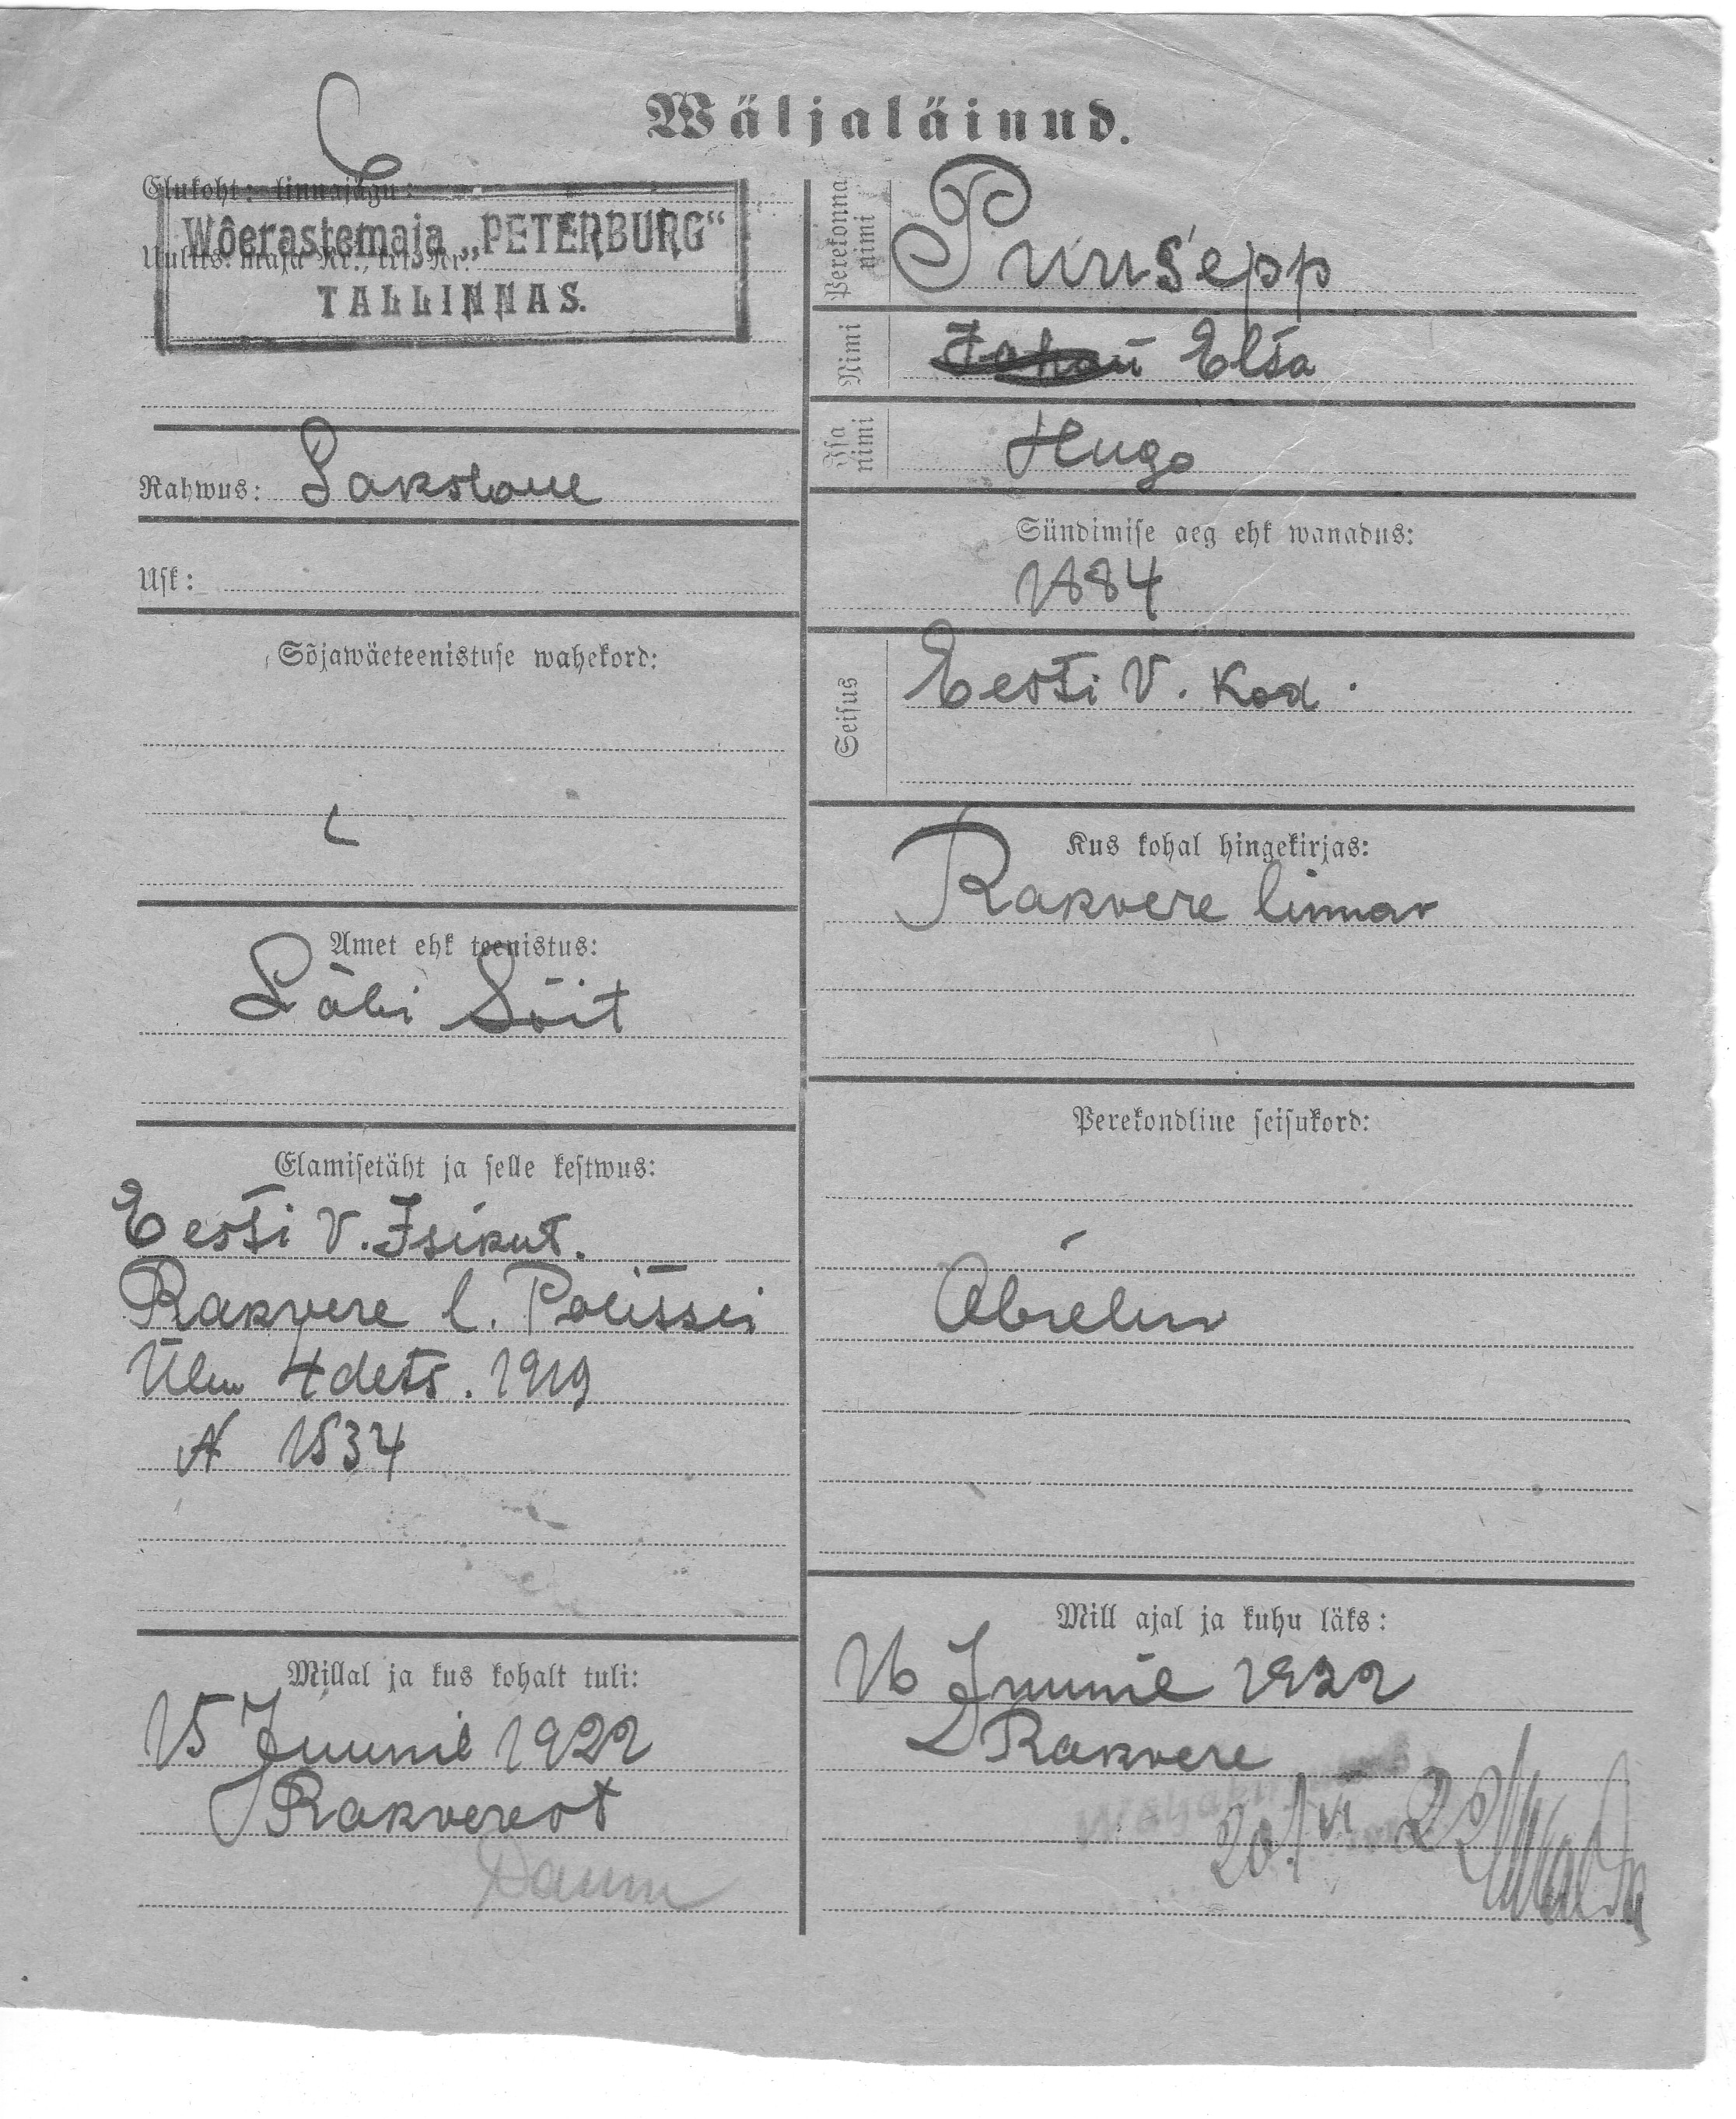 Wäljaläinud.
Elukoht: linnajagu:
Wõerastemaja „PETERBURG“
Uulits. maja Nr., krt. Nr.
TALLINNAS.
Rahwus: Sakslane
Usk:
Sõjawäeteenistuse wahekord:
Amet ehk teenistus:
Läbi Sõit
Elamisetäht ja selle kestwus:
Eesti V. Isikut.
Rakvere l. Politsei
Ülem 4 dets. 1919
N 1534
Millal ja kus kohalt tuli:
15 Juunil 1922
Rakverest
Perekonna nimi
Puusepp
Nimi Elsa
Isa nimi Hugo
Sündimise aeg ehk wanadus:
1884
Seisus Eesti V. Kod.
Kus kohal hingekirjas:
Rakvere linnas
Perekondline seisukord:
Abielus
Mill ajal ja kuhu läks:
16 Juunil 1922
Rakvere
20/VI 22